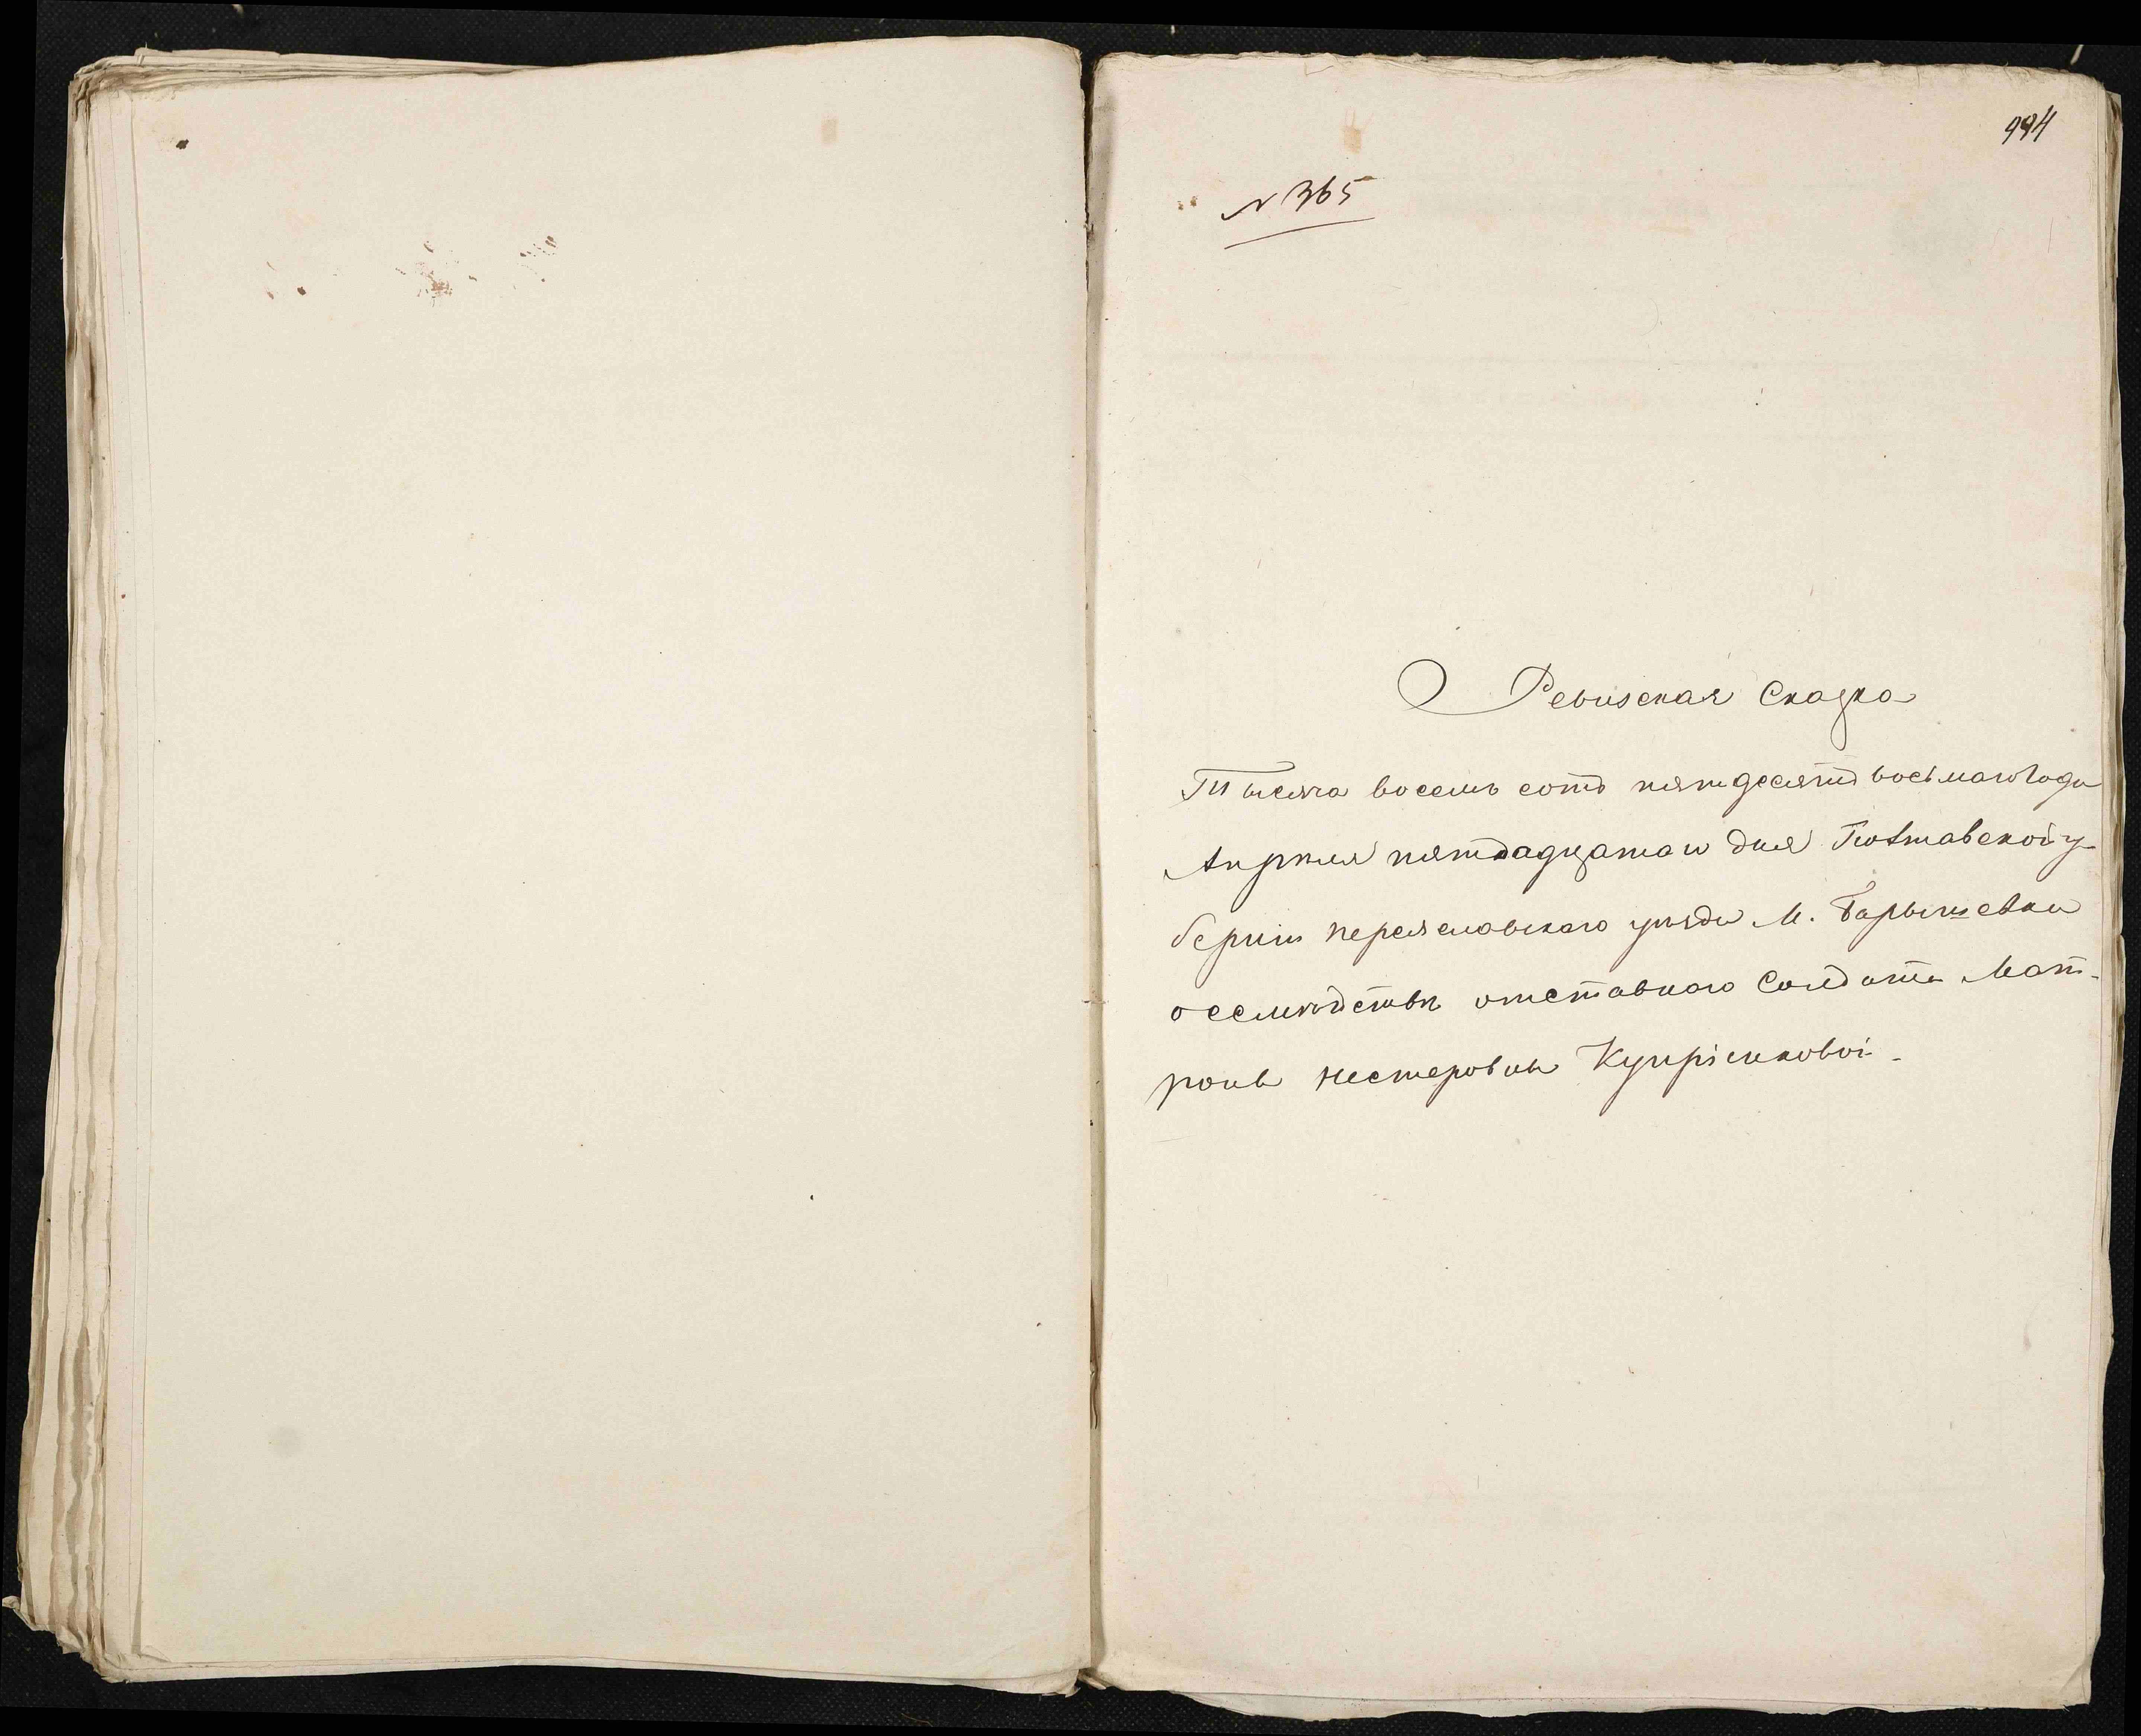 994
N 365
Ревизская Сказка
Тысяча восемь сотъ пятдесятъ восьмаго Года
Апреля пятнадцатаго дня Полтавской гу-
берніи переяславского уезда М. Барышевки
о семействе отставного Солдата Мат-
роны нестеровны Купріенковой